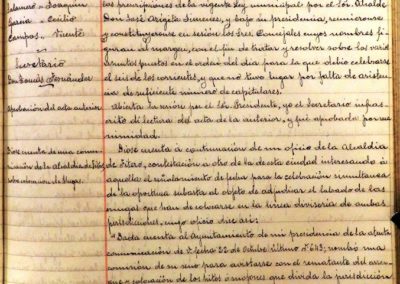 Salamero = Joaquin
Garia = Emilio
Campos = Vicente
Secretario
Don Tomás Fernández
Aprobación del acta anterior
Dióse cuenta de una comu-
nicación de la Alcaldía de Fitero
sobre colocación de Mugas.
las prescripciones de la vigente Ley municipal por el Sor. Alcalde
Don José Arigita Jimenez, y bajo su presidencia, reuniéronse
y constituyéronse en sesión los Sres. Concejales cuyos nombres fi-
guran al margen, con el fin de tratar y resolver sobre los varios
asuntos puestos en el orden del día para la que debió celebrarse
el seis de los corrientes, y que no tuvo lugar por falta de asisten-
cia de suficiente número de capitulares.
Abierta la sesión por el Sor. Presidente, yo el Secretario infras-
crito dí lectura del acta de la anterior, y fué aprobada por una-
nimidad.
Dióse cuenta á continuación de un oficio de la Alcaldía
de Fitero, contestación á otro de la de esta ciudad interesando á
aquella el señalamiento de fecha para la celebración simultanea
de la oportuna subasta al objeto de adjudicar el labado de las
mugas que han de colocarse en la línea divisoria de ambas
jurisdicciones, cuyo oficio dice así:
"Dada cuenta al Ayuntamiento de mi presidencia de la atenta
comunicación de V. fecha 22 de Octubre último nº 643; nombró una
comisión de su seno para avistarse con el rematante del arran-
que y colocación de los hitos ó mojones que divida la jurisdicción